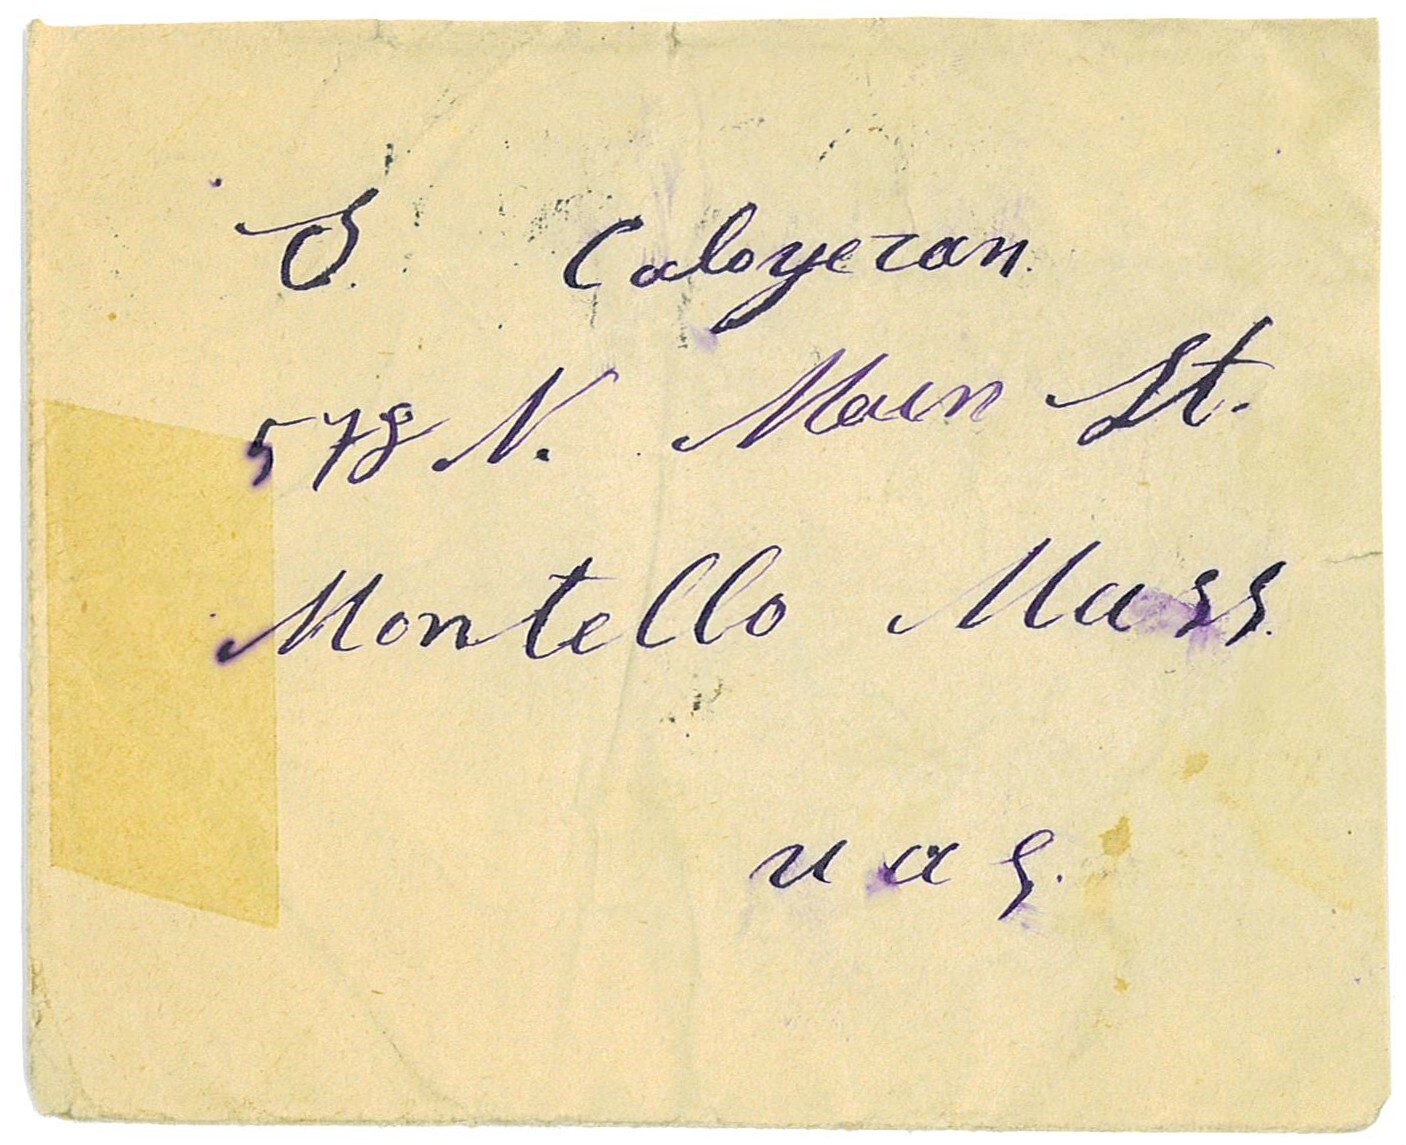 S. Caloyeran.
578 N. Main St.
Montello Mass.
u a s.